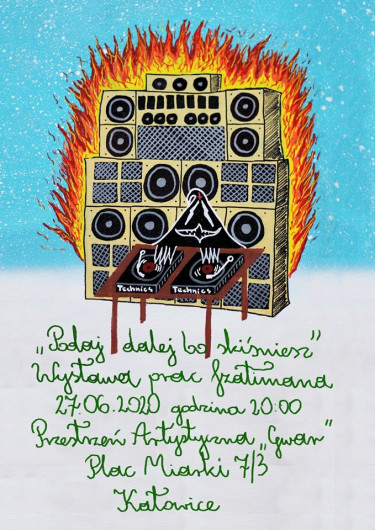 Technics Technics
„Podaj dalej bo skiśniesz"
Wystawa prac fzatimana
27.06.2020 godzina 20:00
Przestrzeń Artystyczna „Gwar"
Plac Miarki 7/3
Katowice